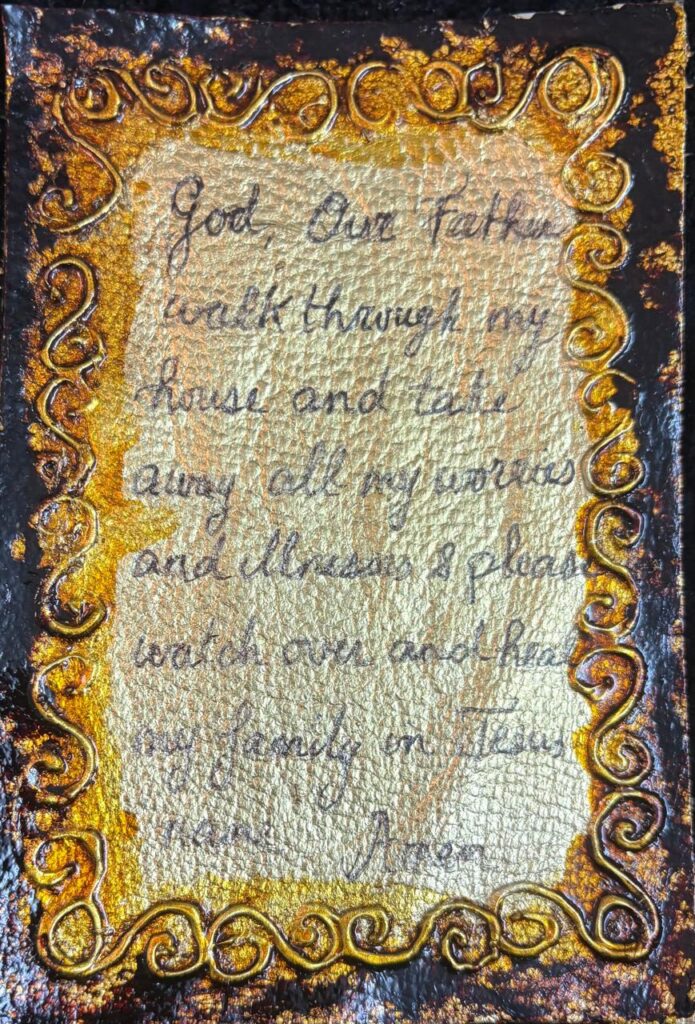 God, Our Father
walk through my
house and take
away all my worries
and illnesses & please
watch over and heal
my family in Jesus
name Amen